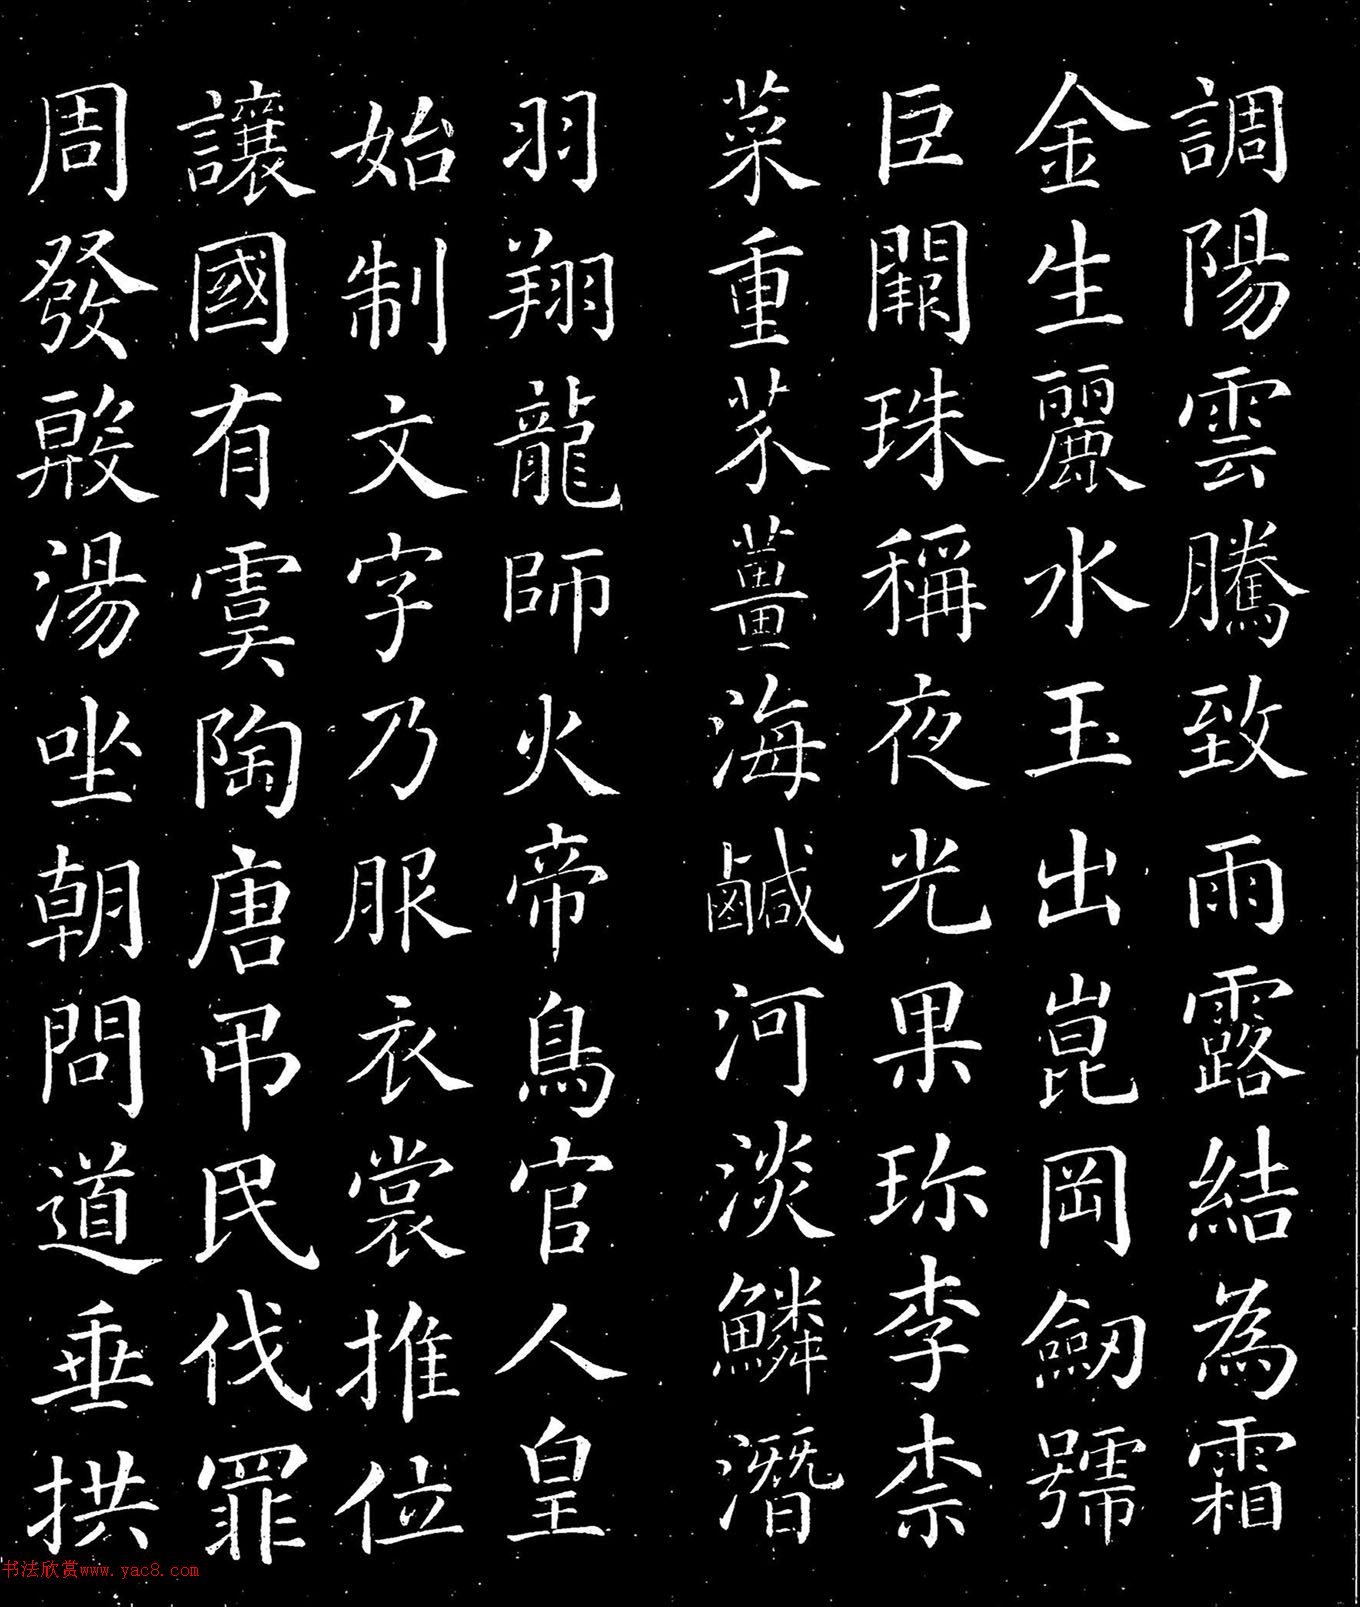 調陽雲騰致雨露結為霜
金生麗水玉出崑岡劒號
巨闕珠稱夜光果珎李柰
菜重芥薑海鹹河淡鱗潛
羽翔龍師火帝鳥官人皇
始制文字乃服衣裳推位
讓國有虞陶唐弔民伐罪
周發殷湯坐朝問道垂拱
书法欣赏www.yac8.com